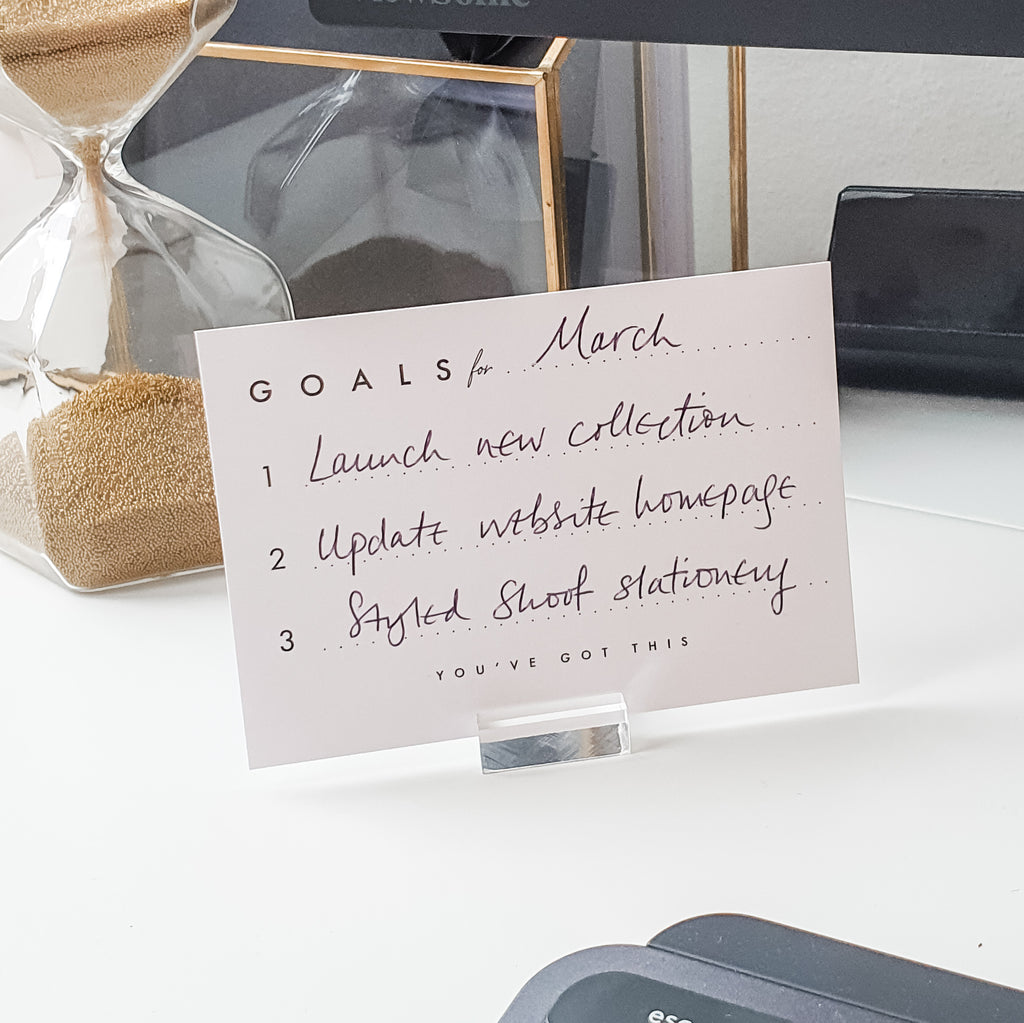 GOALS for March
1 Launch new collection
2 Update website homepage
3 Styled Shoot stationery
YOU'VE GOT THIS
esc